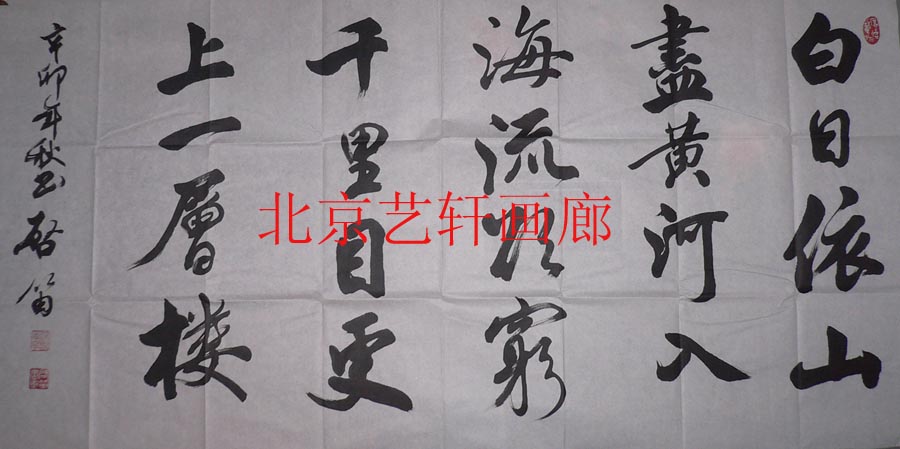 白日依山
盡黄河入
海流欲窮
千里目更
上一層楼
辛卯年秋书
北京艺轩画廊